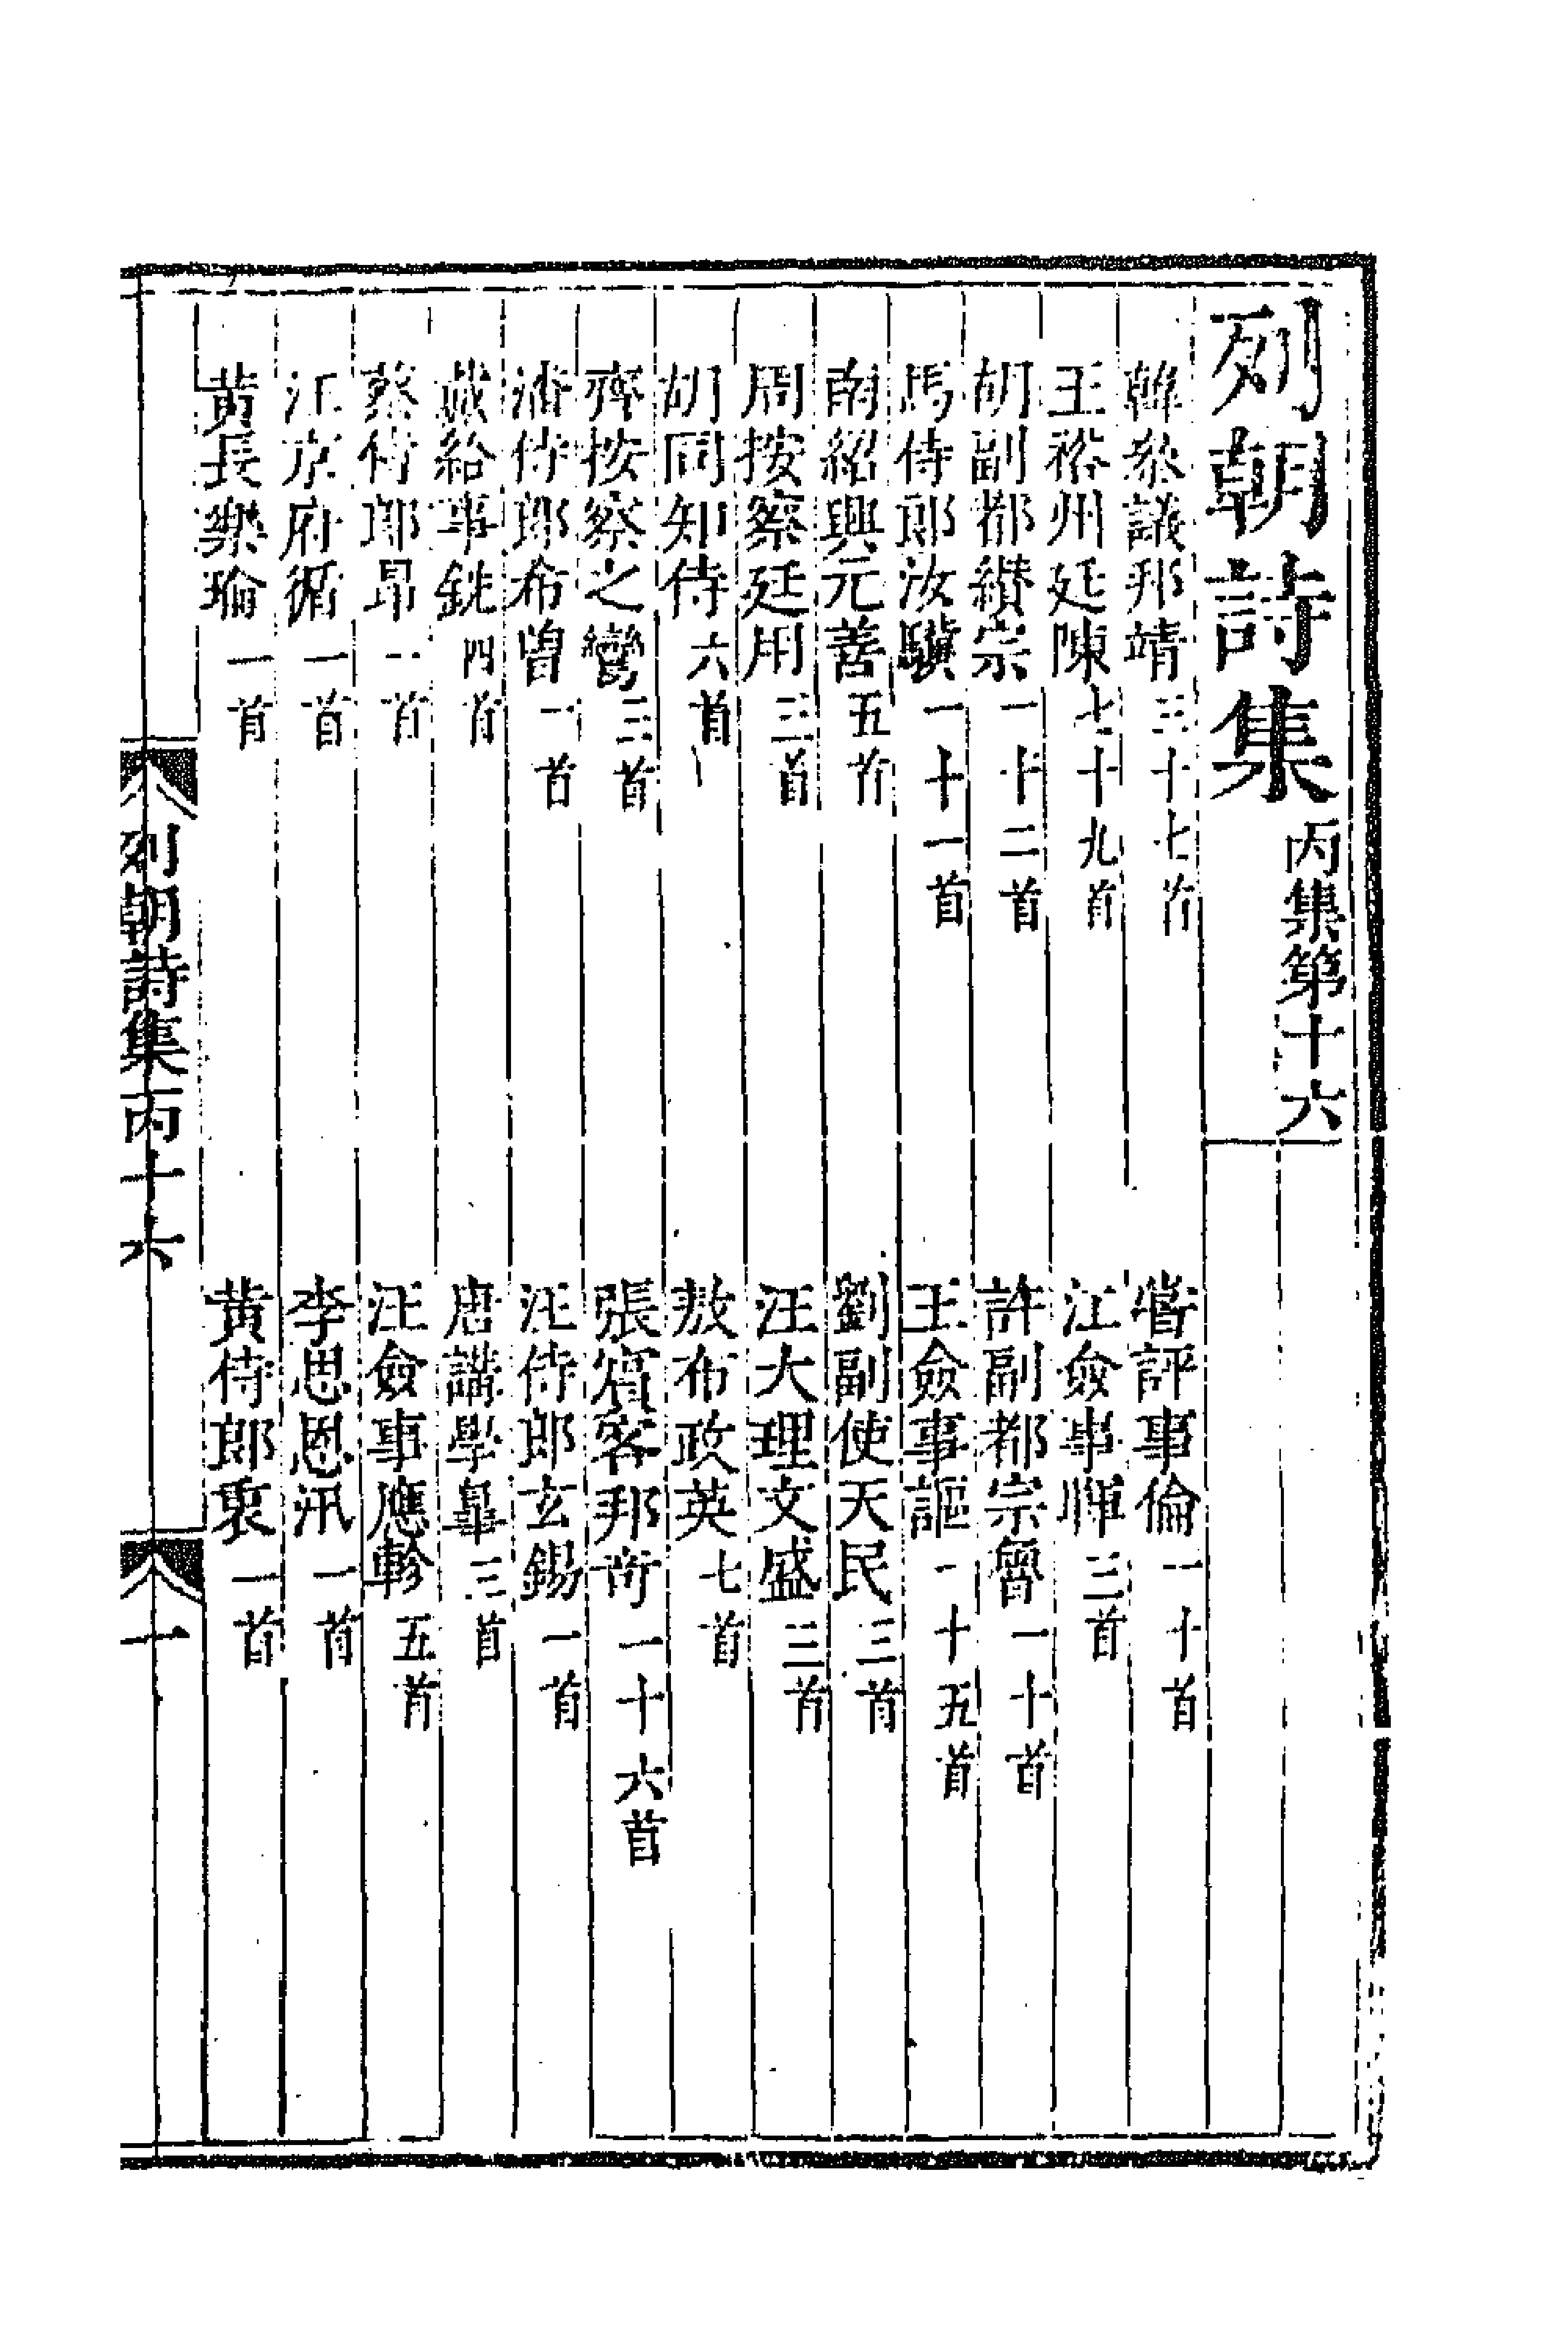 列朝詩集丙集第十六
韓參議邦靖三十七首　甞評事倫一十首
王裕州廷陳七十九首　江僉事暉三首
胡副都纘宗一十二首　許副都宗魯一十首
馬侍郎汝驥一十一首　王僉事謳一十五首
南紹興元善五首　劉副使天民三首
周按察廷用三首　汪大理文盛三首
胡同知侍六首　敖布政英七首
齊按察之鸞三首　張賓客邦奇一十六首
潘侍郎希曾一首　汪侍郎玄錫一首
戴給事銑四首　唐講學皐三首
蔡侍郎昂一首　汪僉事應軫五首
汪京府循一首　李思恩汛一首
黃長樂瑜一首　黃侍郎衷一首
列朝詩集丙十六　一